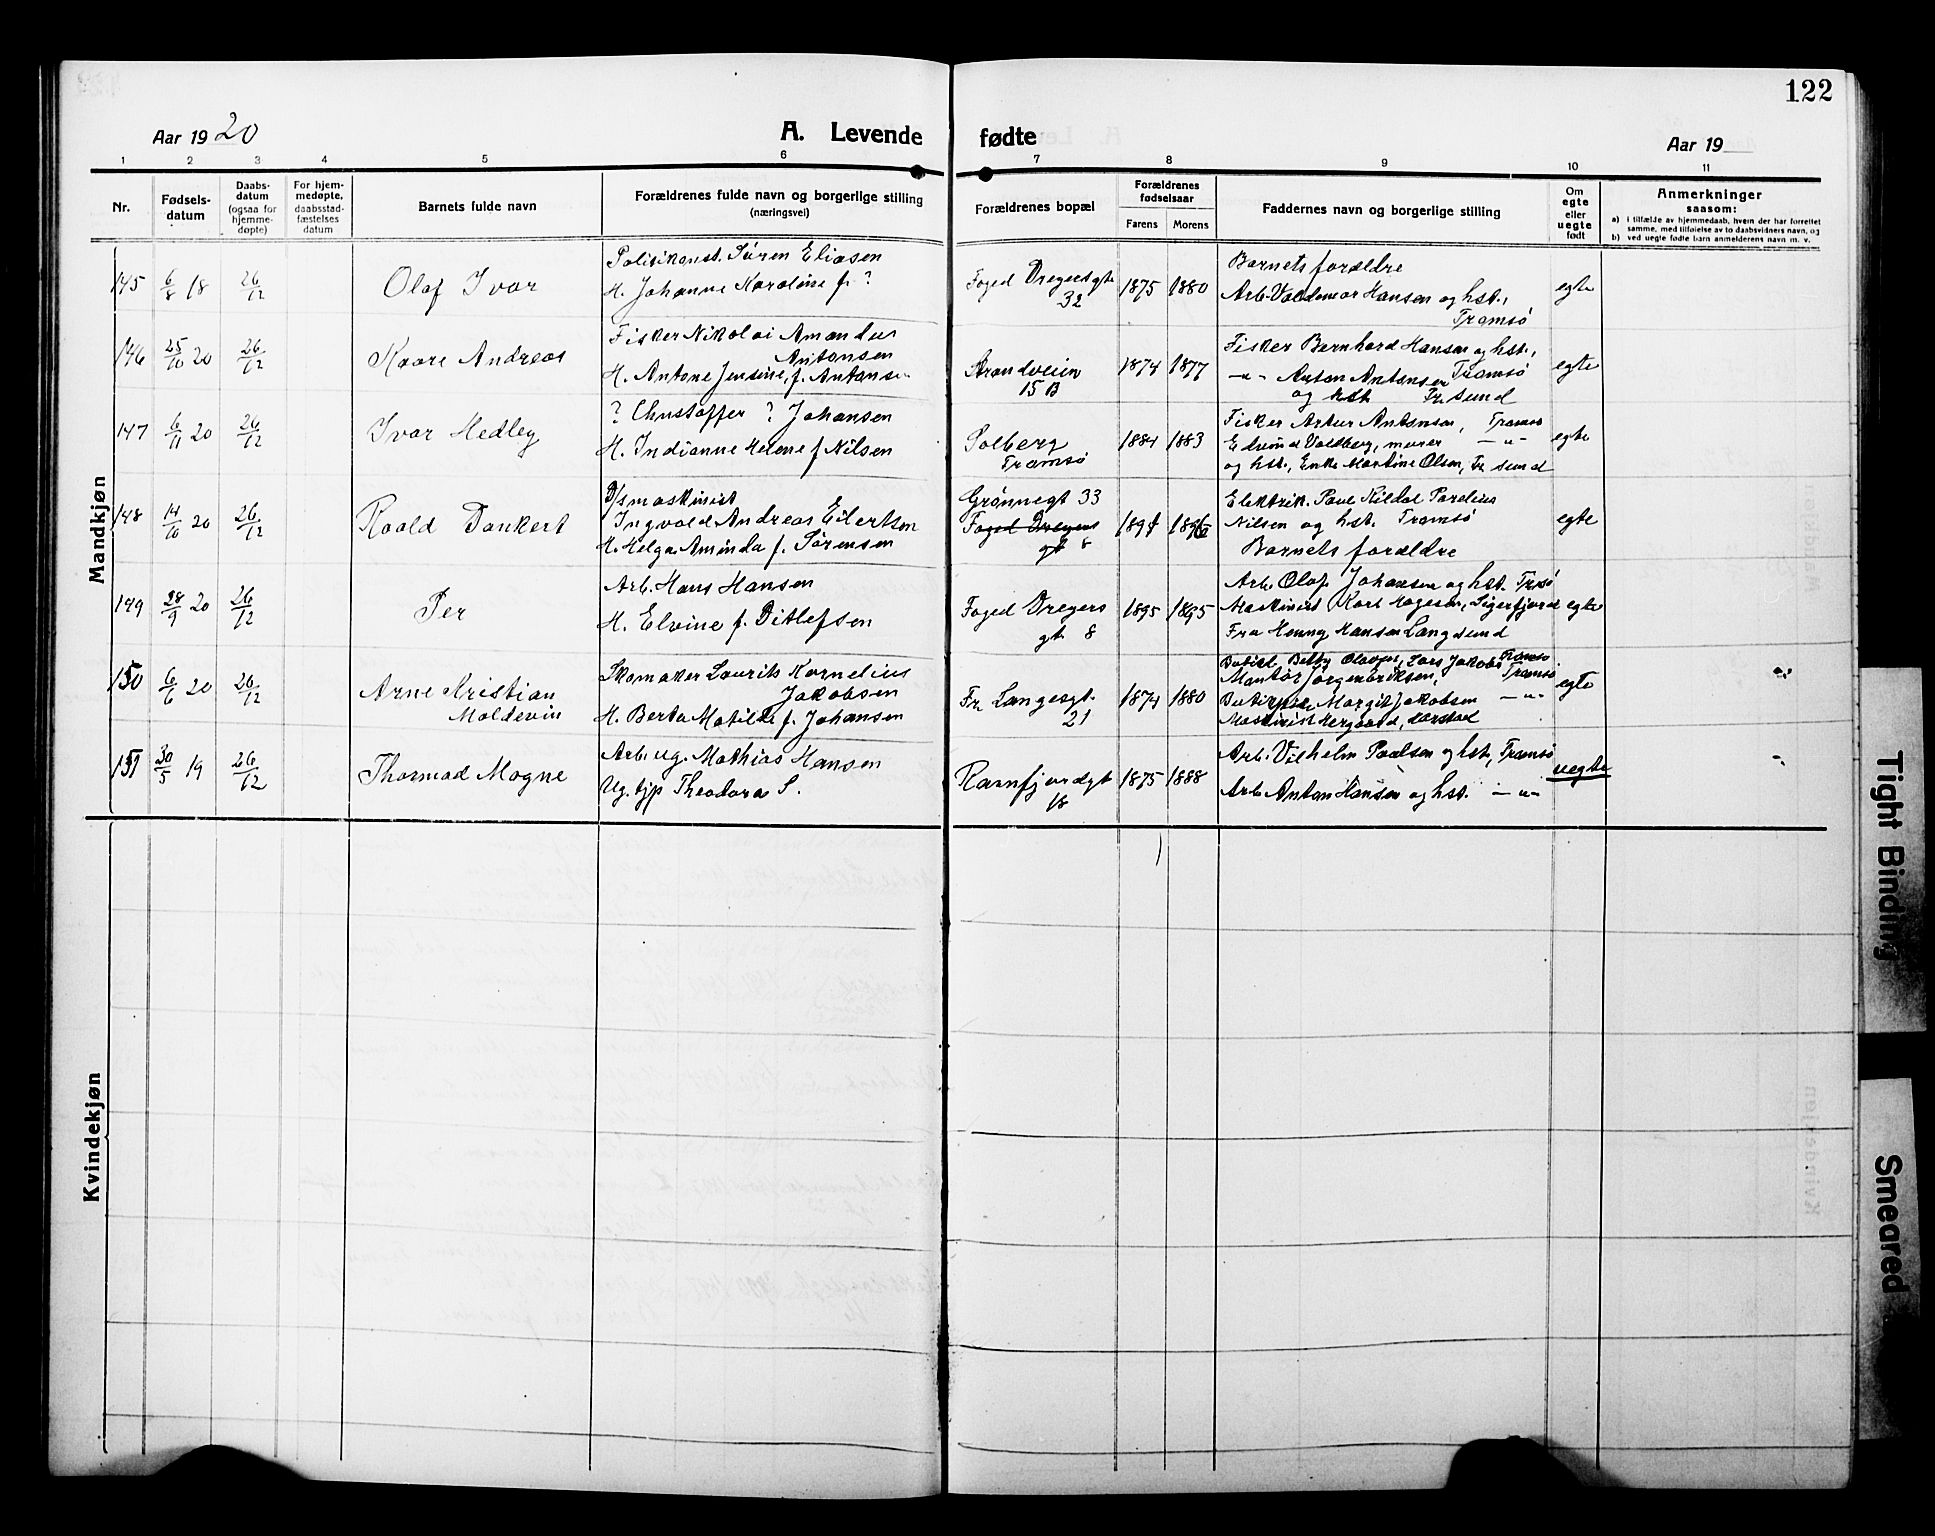 122
Aar 1920
A. Levende fødte
Aar 19
1 2 3 4 5 6 7 8 9 10 11
Nr.
Fødsels-
datum
Daabs-
datum
(ogsaa for
hjemme-
døpte)
For hjem-
medøpte,
daabsstad-
fæstelses
datum
Barnets fulde navn
Forældrenes fulde navn og borgerlige stilling
(næringsvei)
Forældrenes bopæl
Forældrenes
fødselsaar
Farens Morens
Faddernes navn og borgerlige stilling
Om
egte
eller
uegte
født
Anmerkninger
saasom:
a) i tilfælde av hjemmedaab, hvem der har forrettet
samme, med tilføielse av to daabsvidners navn, og
b) ved uegte fødte barn anmelderens navn m. v.
Mandkjøn
145 6/8 18 26/12
Olaf Ivar
Politikonst. Sören Eliasen
H. Johanne Karoline f. ?
Foged Dreyersgt
32
1875 1880
Barnets forældre
Arb. Valdemar Hansen og hst.,
Tromsö
egte
146 25/10 20 26/12
Kaare Andreas
Fisker Nikolai Amandus
Antonsen
H. Antone Jensine, f. Antonsen
Strandveien
15 B
1874 1877
Fisker Bernhard Hansen og hst.,
Tromsö
-"- Anton Antonsen
og hst. Tr. sund
egte
147 6/11 20 26/12
Ivar Hedley
? Christoffer ? Johansen
H. Indianne Helene f. Nilsen
Solberg
Tromsö
1884 1883
Fisker Artur Antonsen, Tromsö
Edvind Valberg, murer -"-
og hst., Enke Martine Olsen, Tr. sund
egte
148 14/10 20 26/12
Roald Dankert
D/s maskinist
Ingvald Andreas Eilertsen
H. Helga Aminda f. Sörensen
Grönnegt 33
Foged Dreyers
gt 8
1894 1896
Elektrik. Paul Kildal Parelius
Nilsen og hst. Tromsö
Barnets forældre
egte
149 28/9 20 26/12
Per
Arb. Hans Hansen
H. Elvine f. Ditlefsen
Foged Dreyers
gt. 8
1895 1895
Arb. Olaf Johansen og hst. Trsö
Maskinist Karl Hagesen, Sigerfjord
Fru Henny Hansen Langsund
egte
150 6/6 20 26/12
Arne Kristian
Moldevin
Skomaker Laurits Kornelius
Jakobsen
H. Berta Matilde f. Johansen
Fr. Langesgt.
21
1874 1880
Margit Jakobsen -"-
egte
151 30/5 19 26/12
Thormod Magne
Arb. ug. Mathias Hansen
Ug. tjp Theodora S.
Ramfjordgt
18
1875 1888
Arb. Vilhelm Paalsen og hst., Tromsö
Arb. Anton Hansen og hst. -"-
uegte
Kvindekjøn
Tight Binding
Smeared